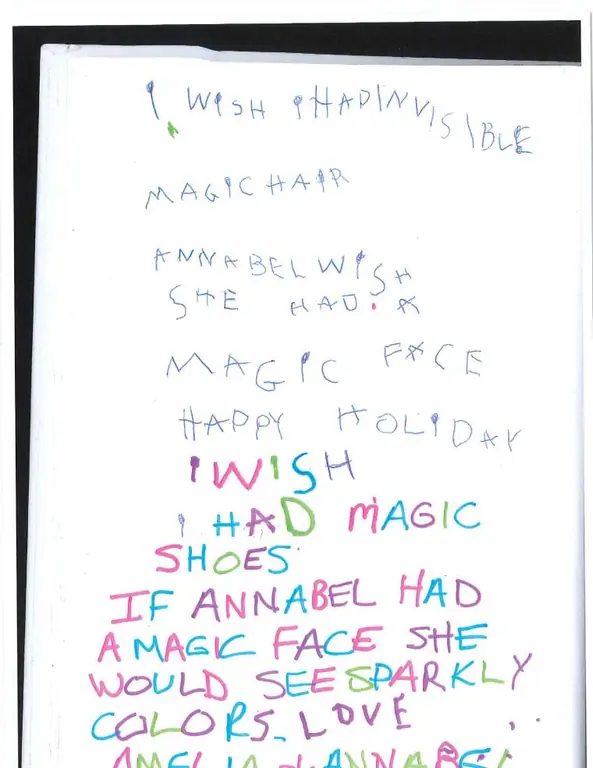 I WISH I HAD INVISIBLE
MAGIC HAIR
ANNABEL WISH
SHE HAD. A
MAGIC FACE
HAPPY HOLIDAY
I WISH
I HAD MAGIC
SHOES
IF ANNABEL HAD
A MAGIC FACE SHE
WOULD SEE SPARKLY
COLORS. LOVE
AMELIA + ANNABEL